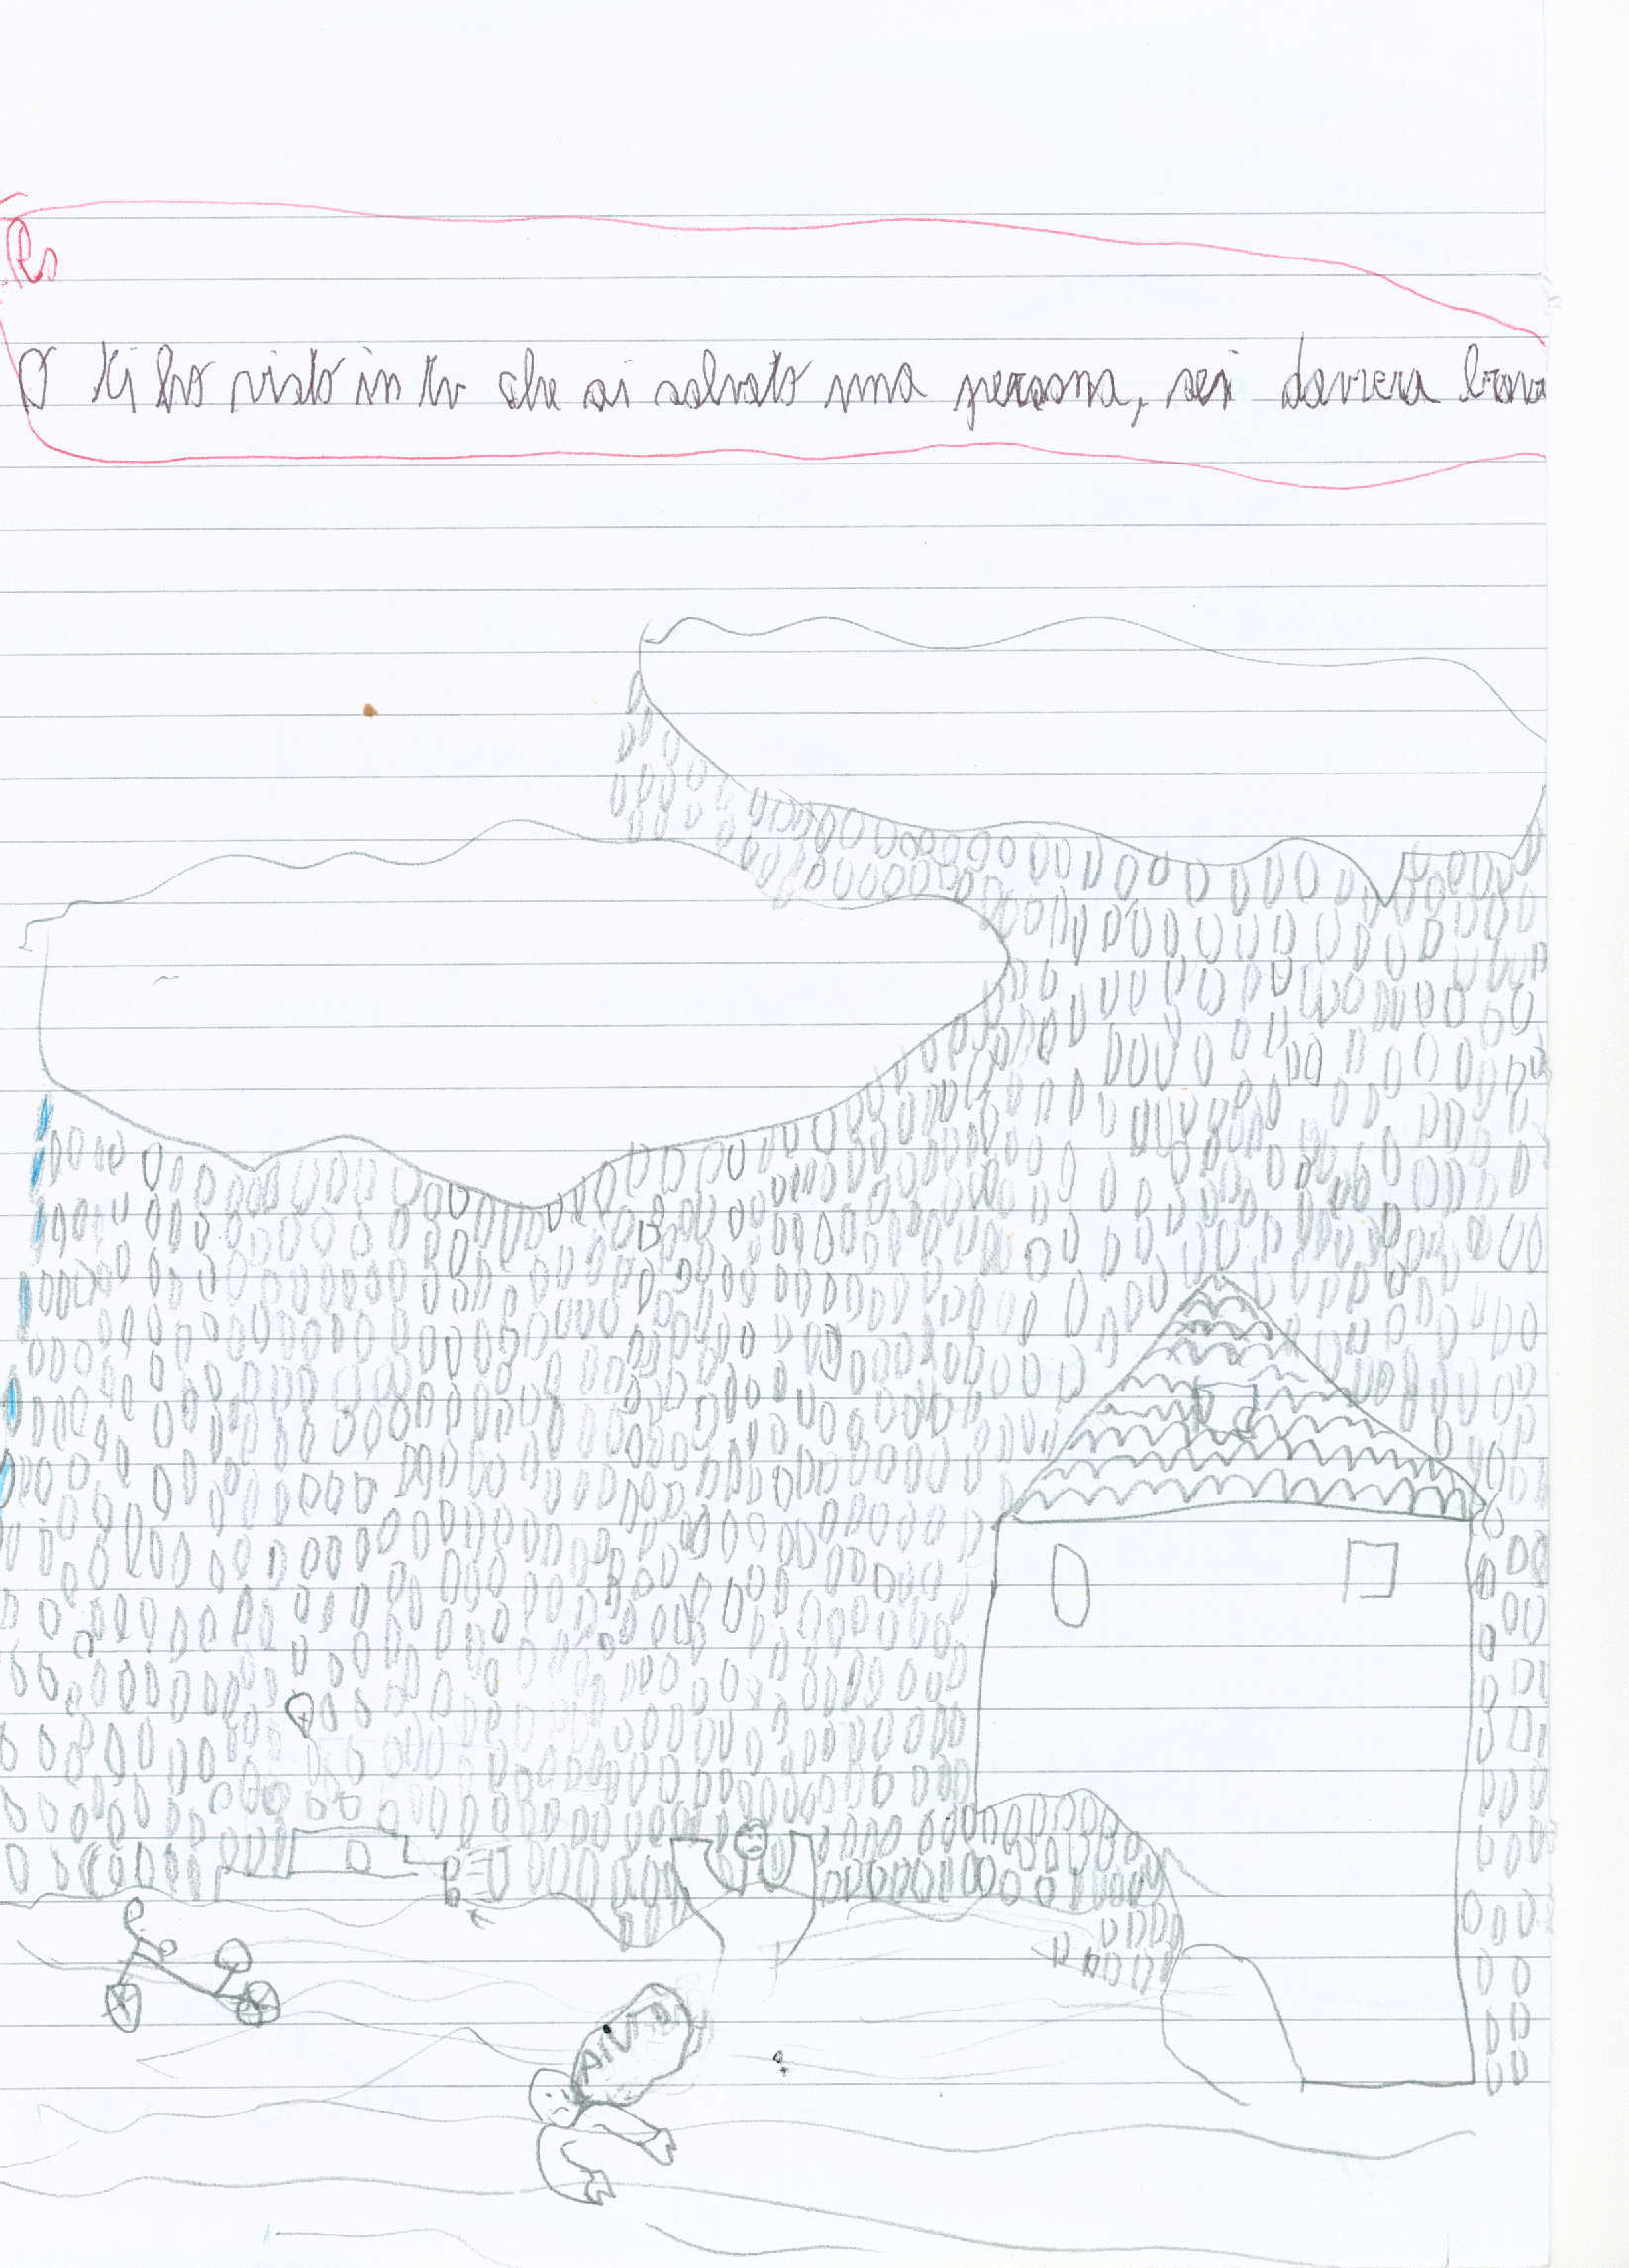 Ps
O ti ho visto in tv che ai salvato una persona, sei davvera brava
AIUTO